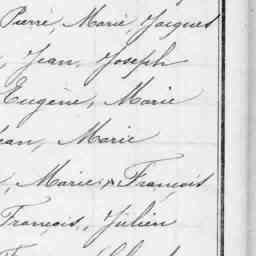 Pierre, Marie, Jacques
, Jean, Joseph
Eugène, Marie
ean, Marie
, Marie, François
François, Julien